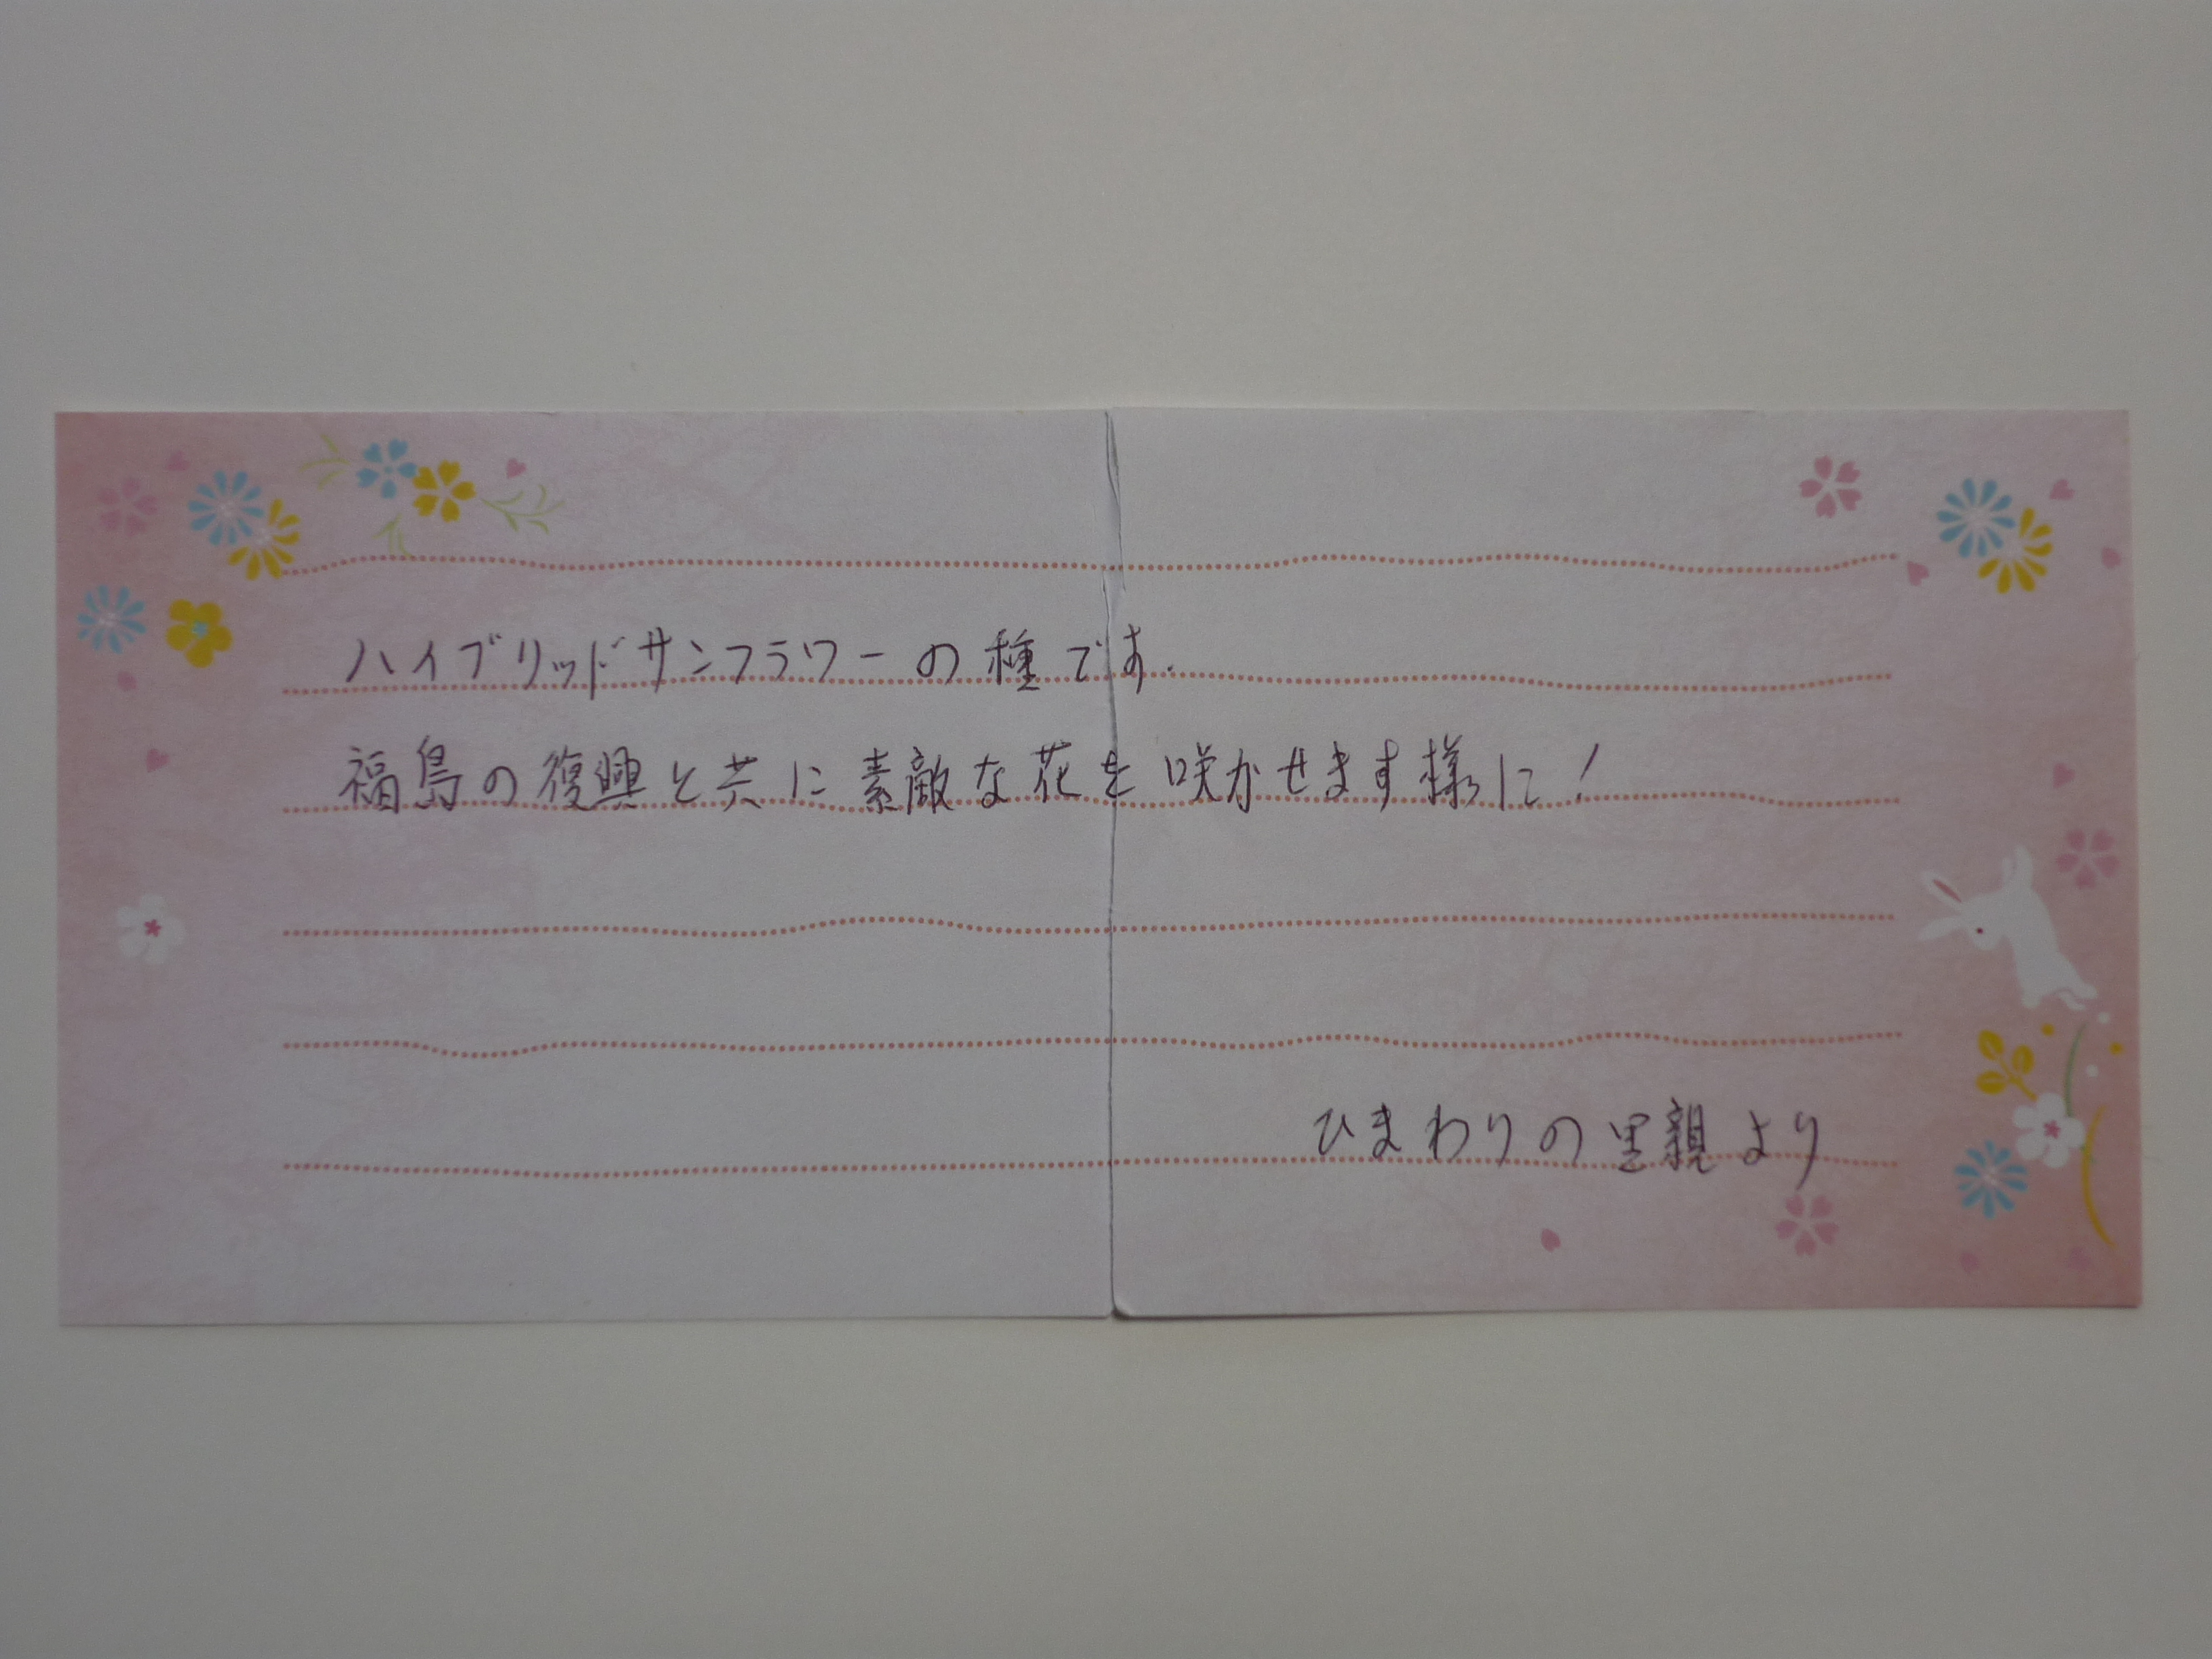 ハイブリッドサンフラワーの種です.
福島の復興と共に素敵な花を咲かせます様に!
ひまわりの里親より